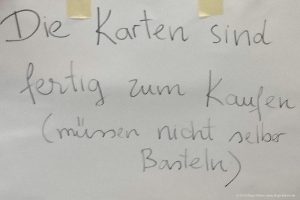 Die Karten sind
fertig zum Kaufen
(müssen nicht selber
Basteln)